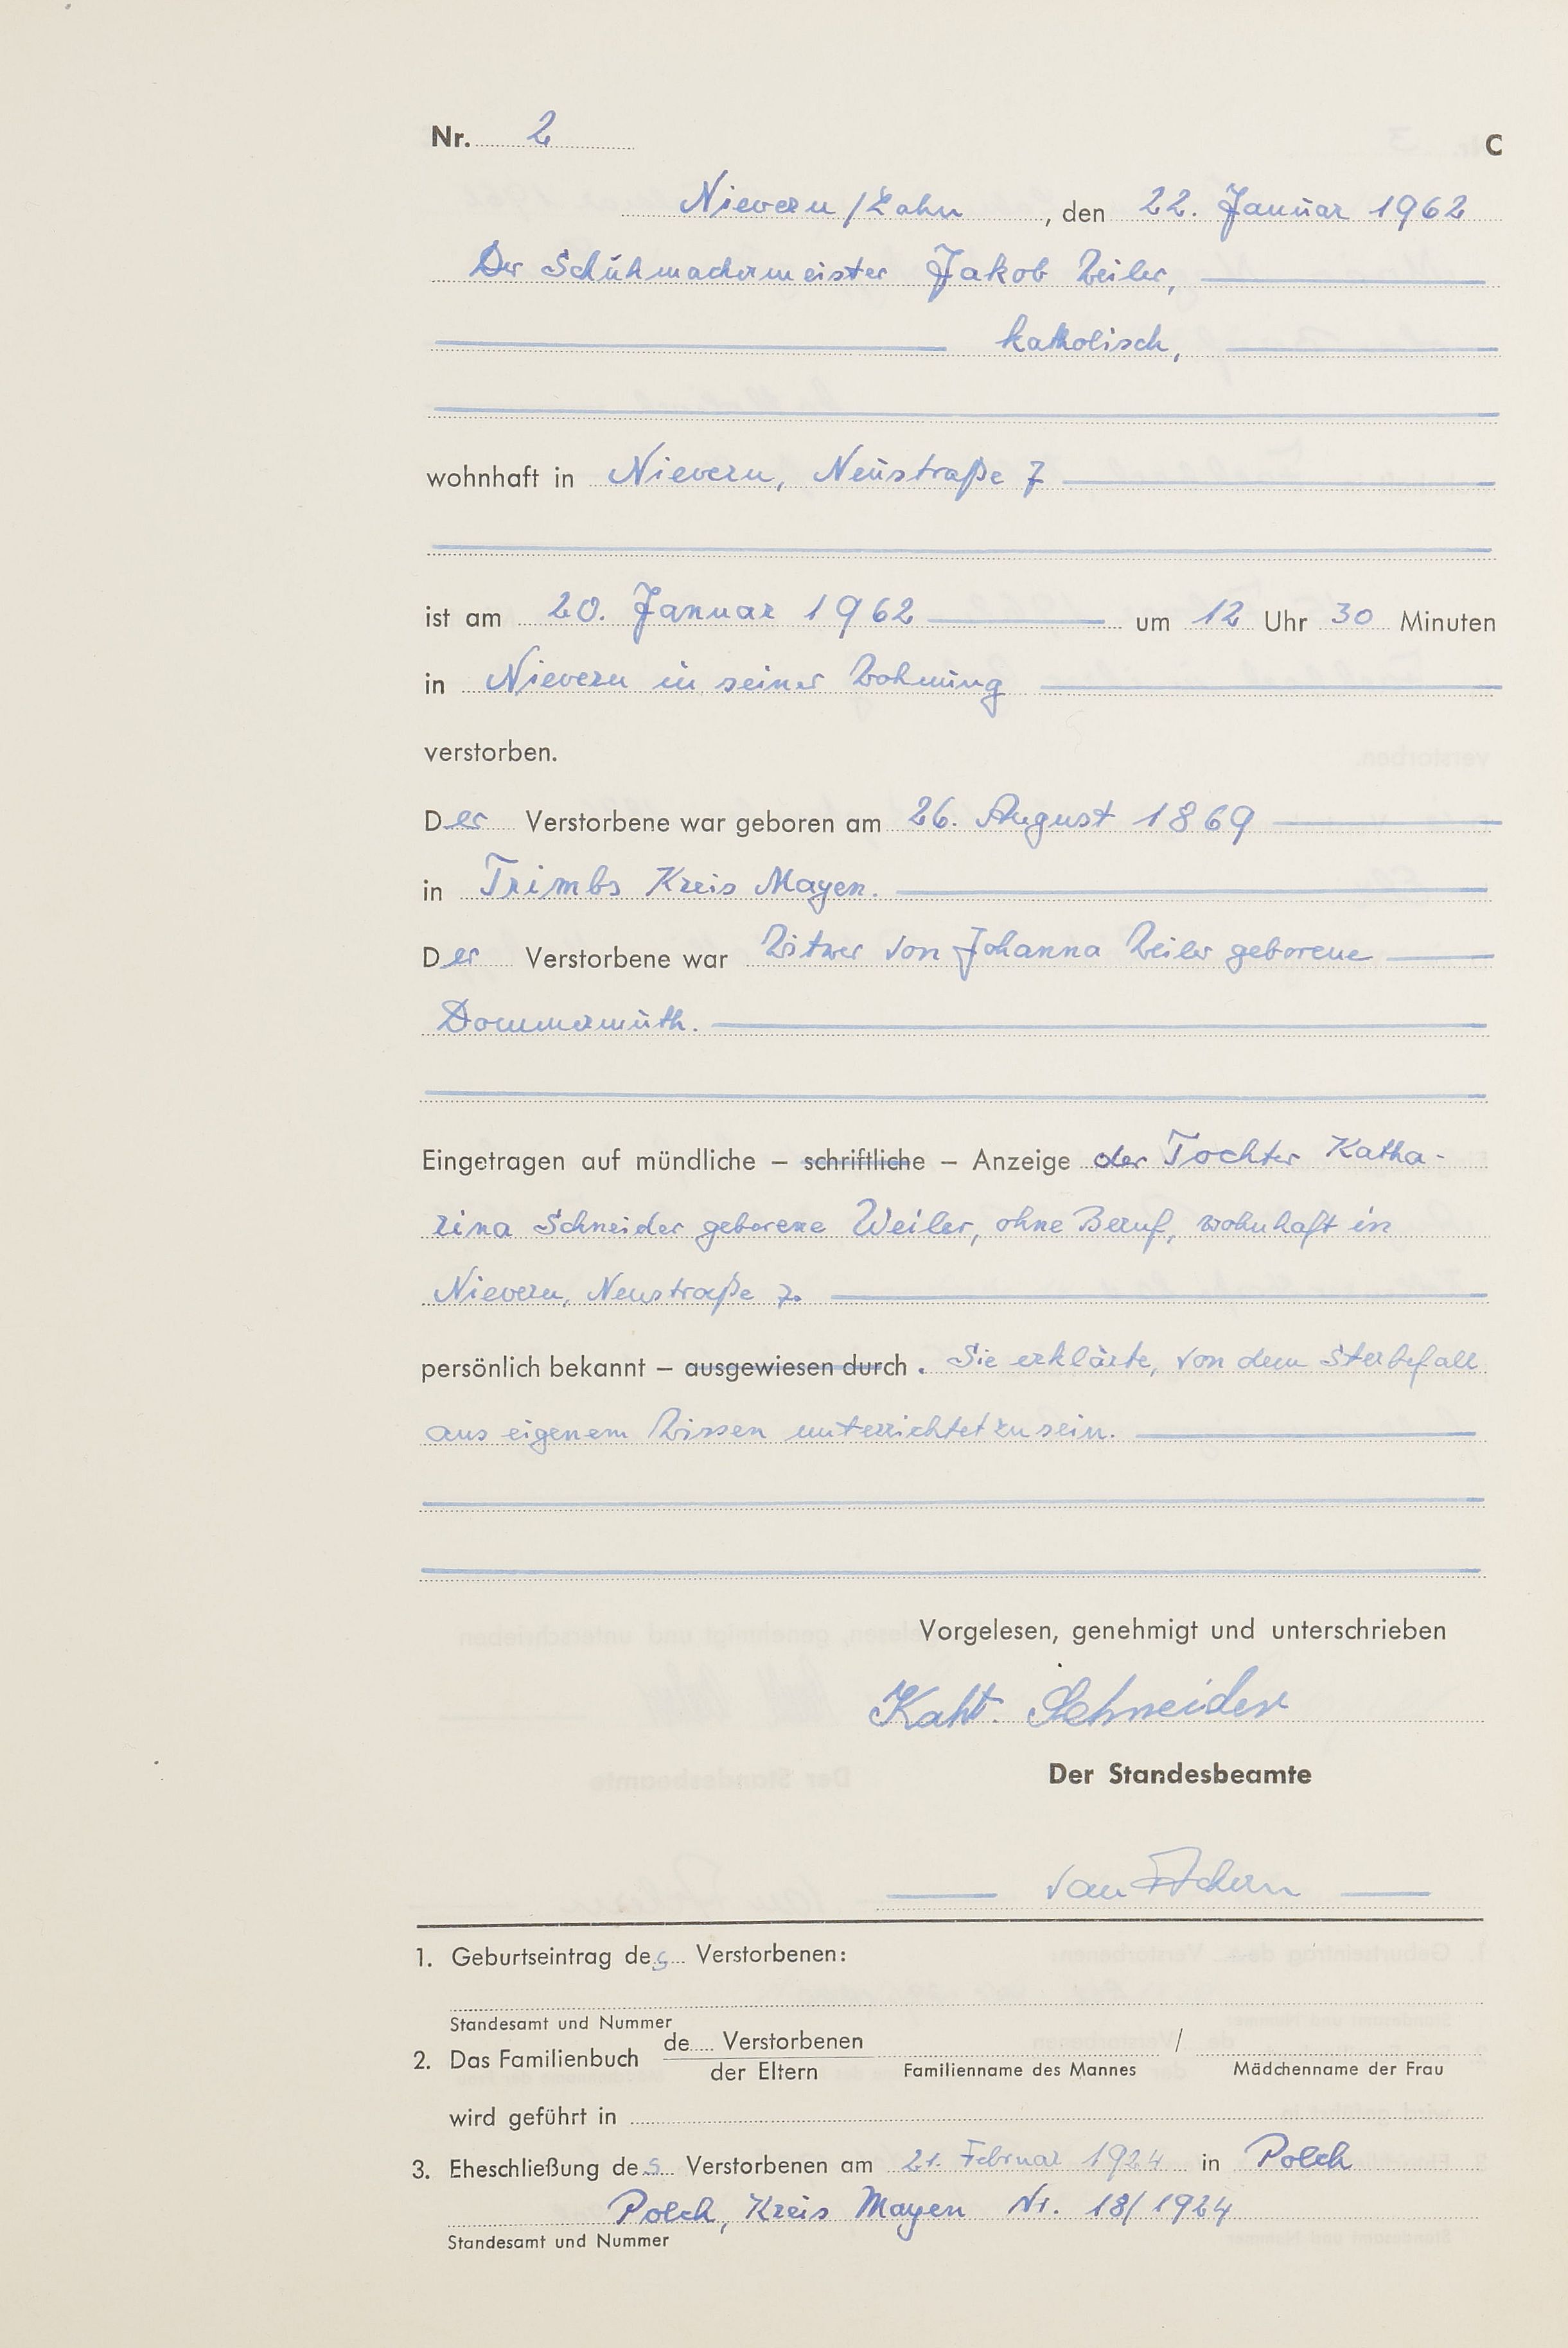 Nr. 2 C
Nievern/Lahn, den 22. Januar 1962
Der Schuhmachermeister Jakob Weiler,
katholisch,
wohnhaft in Nievern, Neustraße 7
ist am 20. Januar 1962 um 12 Uhr 30 Minuten
in Nievern in seiner Wohnung
verstorben.
Der Verstorbene war geboren am 26. August 1869
in Trimbs Kreis Mayen.
Der Verstorbene war Witwer von Johanna Weiler geborene
Dommermuth.
Eingetragen auf mündliche – schriftliche – Anzeige der Tochter Katha-
rina Schneider geborene Weiler, ohne Beruf, wohnhaft in
Nievern, Neustraße 7.
persönlich bekannt – ausgewiesen durch. Sie erklärte, von dem Sterbefall
aus eigenem Wissen unterrichtet zu sein.
Vorgelesen, genehmigt und unterschrieben
Kaht. Schneider
Der Standesbeamte
van
1. Geburtseintrag des Verstorbenen:
Standesamt und Nummer
2. Das Familienbuch de.... Verstorbenen /
der Eltern Familienname des Mannes Mädchenname der Frau
wird geführt in
3. Eheschließung des Verstorbenen am 21. Februar 1924 in Polch
Polch, Kreis Mayen Nr. 18/1924
Standesamt und Nummer